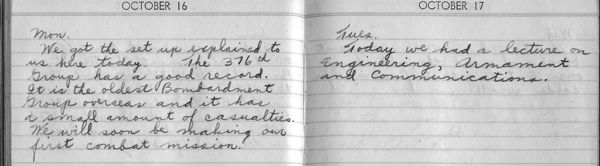 OCTOBER 16
Mon.
We got the set up explained to
us here today. The 376th
Group has a good record.
It is the oldest Bombardment
Group overseas and it has
a small amount of casualties.
We will soon be making our
first combat mission.
OCTOBER 17
Tues.
Today we had a lecture on
Engineering, Armament
and Communications.